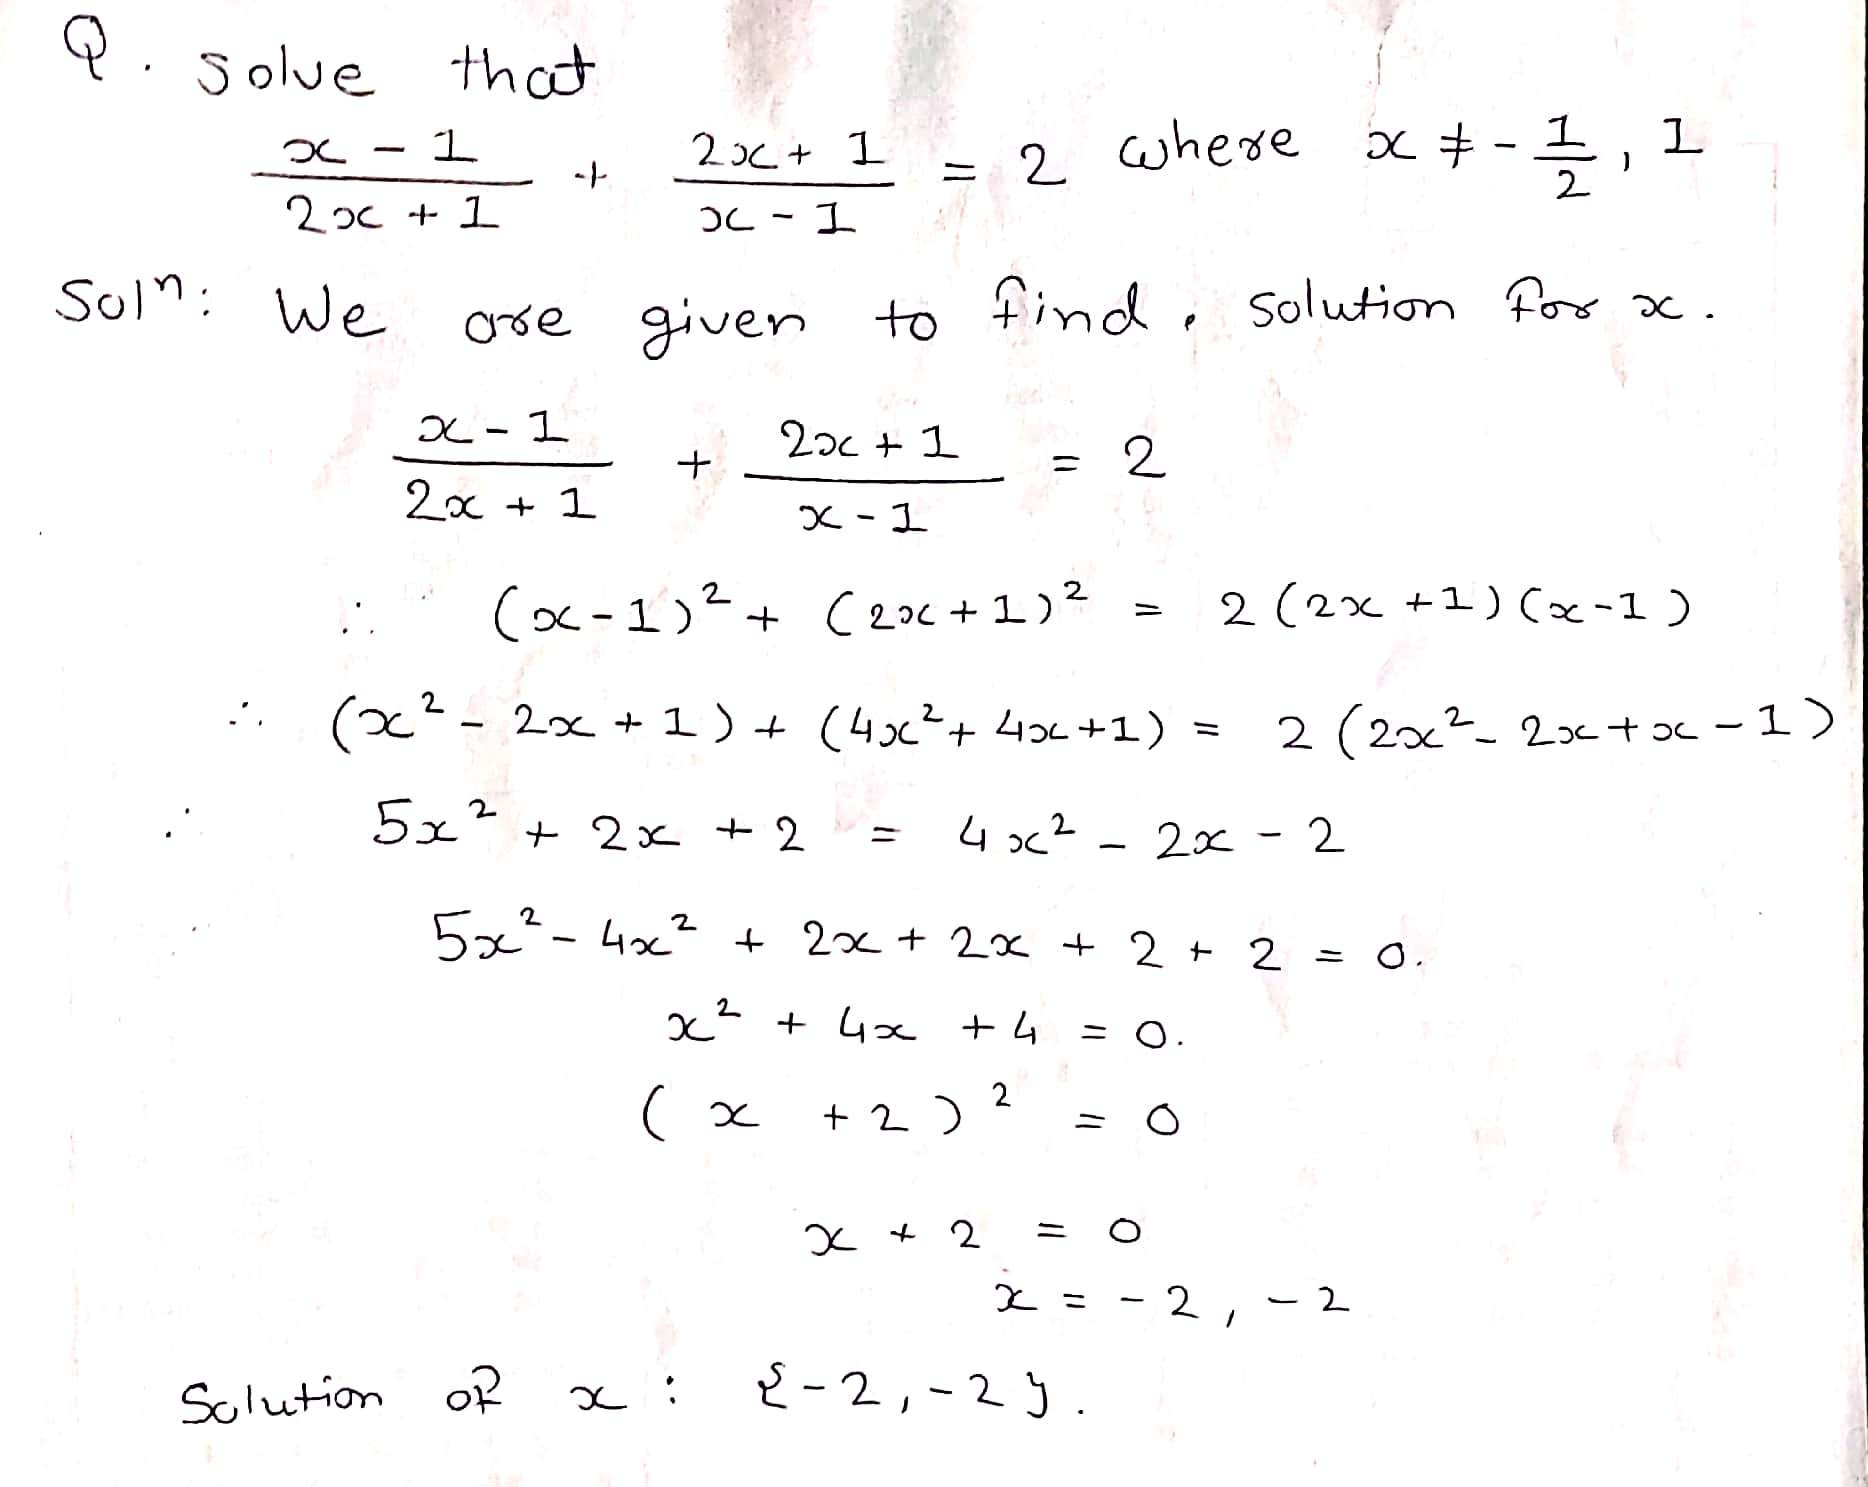 Q. solve that
x - 1 / 2x + 1 + 2x + 1 / x - 1 = 2 where x ≠ - 1/2 , 1
Solⁿ: We are given to find , solution for x .
x - 1 / 2x + 1 + 2x + 1 / x - 1 = 2
∴ (x - 1)² + (2x + 1)² = 2 (2x + 1) (x - 1)
∴ (x² - 2x + 1) + (4x² + 4x + 1) = 2 (2x² - 2x + x - 1)
∴ 5x² + 2x + 2 = 4x² - 2x - 2
5x² - 4x² + 2x + 2x + 2 + 2 = 0.
x² + 4x + 4 = 0.
(x + 2)² = 0
x + 2 = 0
x = - 2 , - 2
Solution of x : {-2, -2}.